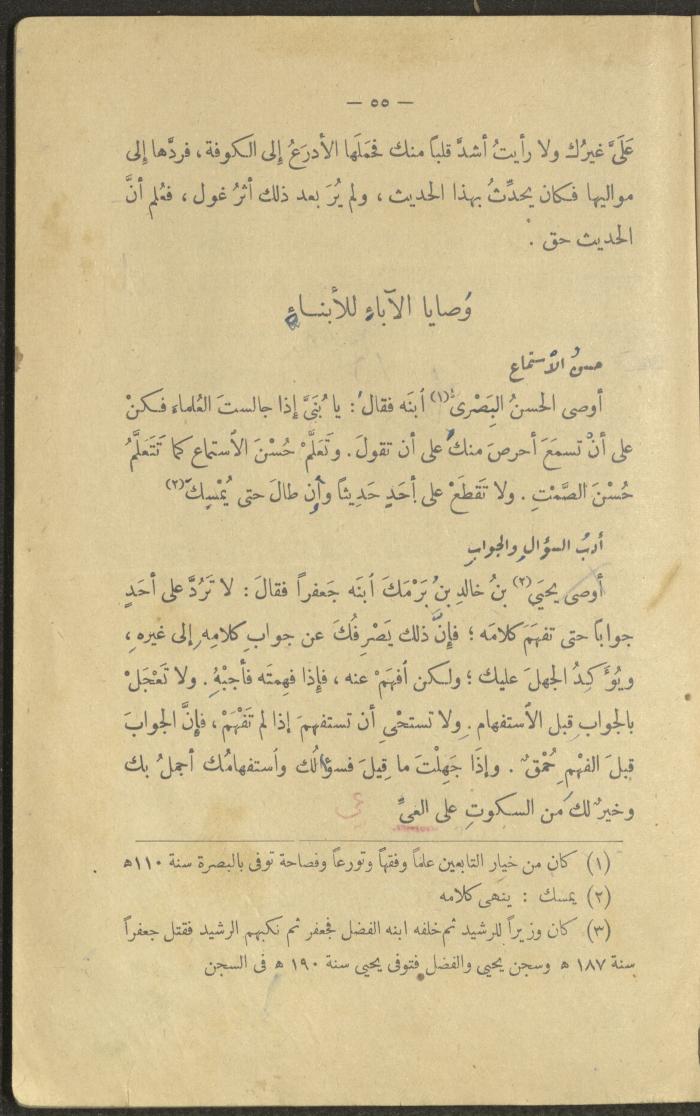 — ٥٥ —
عَلَىَّ غيرُك ولا رأيتُ أشدَّ قلباً منك فحَمَلَها الأدرَعُ إلى الكوفة، فردَّها إلى
مواليها فكان يحدِّثُ بهذا الحديث، ولم يُرَ بعد ذلك أثرُ غول، فعُلم أنَّ
الحديث حق.
وَصايا الآباءِ للأبناءِ
حسنُ الاستماع
أوصى الحسنُ البَصْرِىُّ(١) ٱبنَه فقال: يا بُنَىَّ إذا جالستَ العُلماء فكنْ
على أنْ تسمَعَ أحرصَ منك على أن تقولَ. وتَعَلَّمْ حُسْنَ الٱستماع كما تَتَعَلَّمُ
حُسْنَ الصَّمْتِ. ولا تَقطَعْ على أحَدٍ حَدِيثاً وإن طالَ حتى يُمْسِكَ(٢)
أدبُ السؤالِ والجوابِ
أوصى يحيَى(٣) بنُ خالدِ بنُ بَرْمَكَ ٱبنَه جَعفراً فقالَ: لا تَرُدَّ على أحَدٍ
جواباً حتى تفهَمَ كلامَه؛ فإنَّ ذلك يَصْرِفُكَ عن جوابِ كلامِهِ إلى غيره،
ويُؤَكِّدُ الجهلَ عليك؛ ولكن ٱفهَمْ عنه، فإذا فهِمتَه فأجبْهُ. ولا تَعْجَلْ
بالجوابِ قبل الٱستفهام. ولا تستحْىِ أن تستفهمَ إذا لم تَفْهَمْ، فإنَّ الجوابَ
قبلَ الفهْمِ حُمْقٌ. وإذَا جَهِلْتَ ما قِيلَ فسؤالُك وٱستفهامُك أجملُ بك
وخيرٌ لك من السكوتِ على العىِّ
(١) كان من خيار التابعين علماً وفقهاً وتورعاً وفصاحة توفى بالبصرة سنة ١١٠هـ
(٢) يمسك : ينهى كلامه
(٣) كان وزيراً للرشيد ثم خلفه ابنه الفضل فجعفر ثم نكبهم الرشيد فقتل جعفراً
سنة ١٨٧ هـ وسجن يحيى والفضل فتوفى يحيى سنة ١٩٠ هـ فى السجن